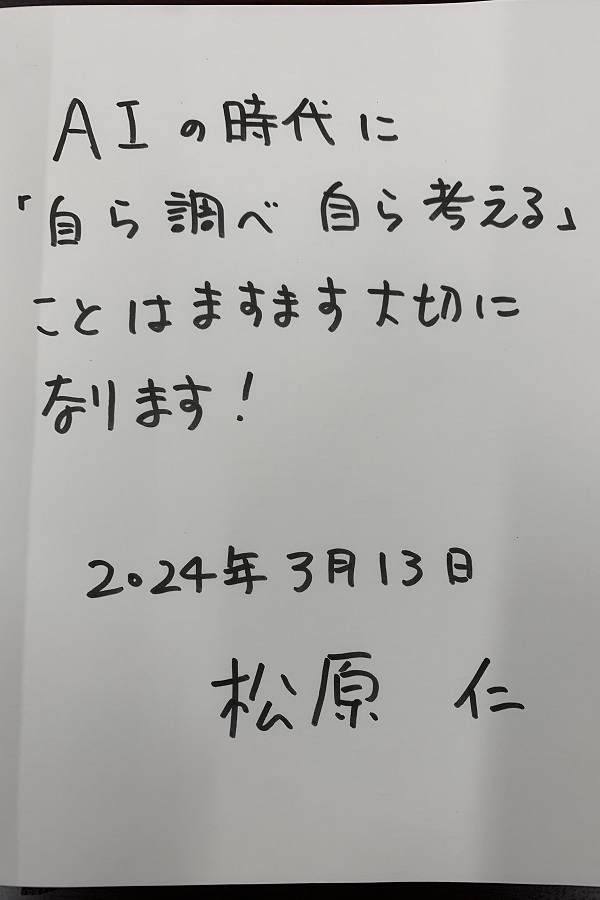 AIの時代に
「自ら調べ 自ら考える」
ことはますます大切に
なります!
2024年3月13日
松原 仁